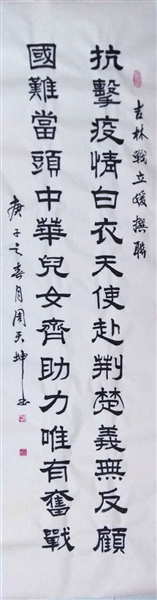 吉林戰立媛撰聯
抗擊疫情白衣天使赴荆楚義無反顧
國難當頭中華兒女齊助力唯有奮戰
庚子之春月周天坤书